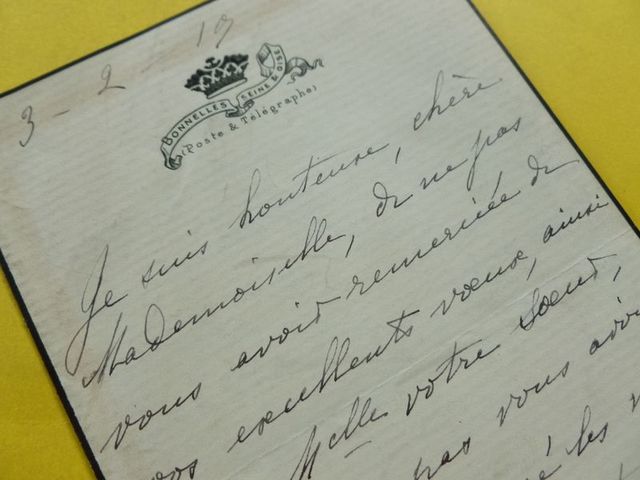 3 - 2 - 19
BONNELLES SEINE & OISE
(Poste & Télégraphe)
Je suis honteuse, chère
Mademoiselle, de ne pas
vous avoir remerciée de
vos excellents vœux, ainsi
Melles votre sœur,
pas vous
les